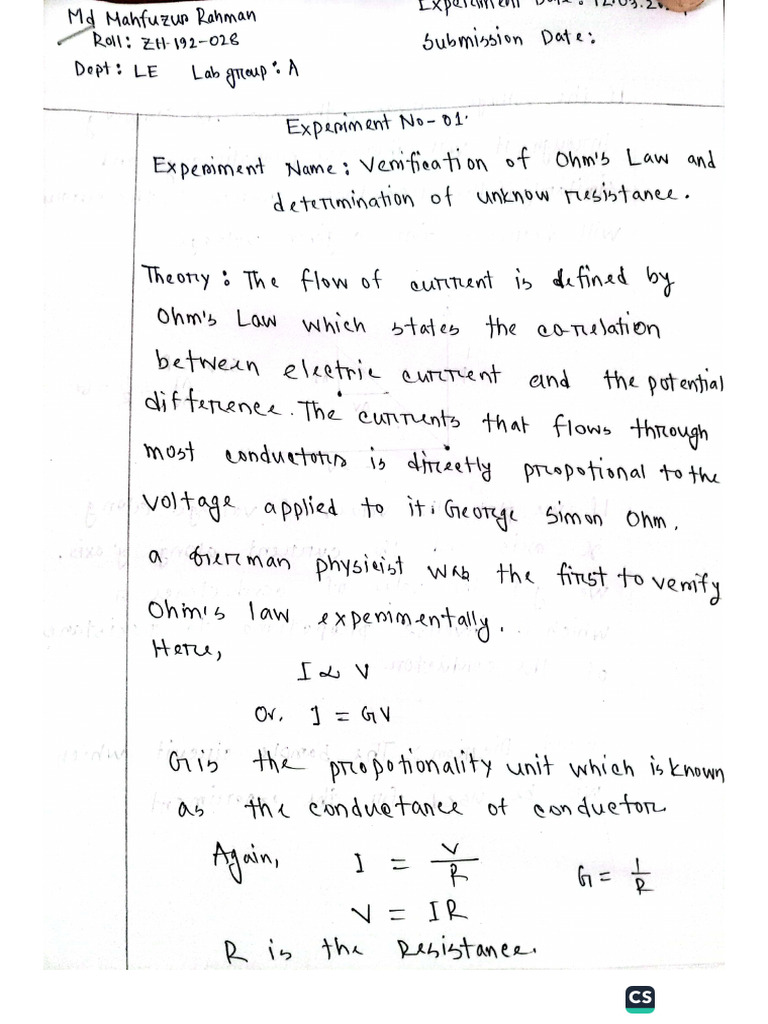 Md Mahfuzur Rahman
Roll: ZH-192-028
Dept: LE Lab group: A
Experiment Date: 12.03.2
Submission Date:
Experiment No-01.
Experiment Name: Verification of Ohm's Law and
determination of unknow resistance.
Theory: The flow of current is defined by
Ohm's Law which states the correlation
between electric current and the potential
difference. The currents that flows through
most conductors is directly propotional to the
voltage applied to it. George Simon Ohm.
a German physicist was the first to verify
Ohm's law experimentally.
Here,
I ∝ V
Or, I = GV
G is the propotionality unit which is known
as the conductance of conductor
Again, I = V/R G = 1/R
V = IR
R is the Resistance.
CS